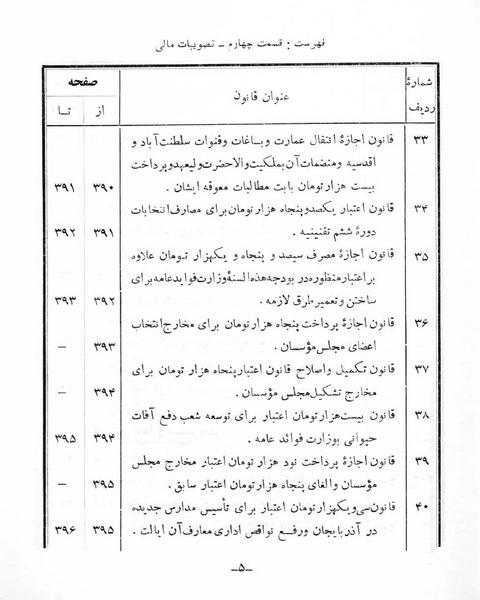 فهرست : قسمت چهارم ـ تصویبات مالی
شمارهٔ ردیف
عنوان قانون
صفحه
از
تا
۳۳
قانون اجازهٔ انتقال عمارت و باغات و قنوات سلطنت‌آباد و
اقدسیه و منضمات آن بملکیت والاحضرت ولیعهد و پرداخت
بیست هزار تومان بابت مطالبات معوقه ایشان . ۳۹۰ ۳۹۱
۳۴
قانون اعتبار یکصد و پنجاه هزار تومان برای مصارف انتخابات
دورهٔ ششم تقنینیه . ۳۹۱ ۳۹۲
۳۵
قانون اجازهٔ مصرف سیصد و پنجاه و یکهزار تومان علاوه
بر اعتبار منظوره در بودجه هذه السنهٔ وزارت فواید عامه برای
ساختن و تعمیر طرق لازمه . ۳۹۲ ۳۹۳
۳۶
قانون اجازهٔ پرداخت پنجاه هزار تومان برای مخارج انتخاب
اعضای مجلس مؤسسان . ۳۹۳ –
۳۷
قانون تکمیل و اصلاح قانون اعتبار پنجاه هزار تومان برای
مخارج تشکیل مجلس مؤسسان . ۳۹۴ –
۳۸
قانون بیست هزار تومان اعتبار برای توسعه شعب دفع آفات
حیوانی بوزارت فوائد عامه . ۳۹۴ ۳۹۵
۳۹
قانون اجازهٔ پرداخت نود هزار تومان اعتبار مخارج مجلس
مؤسسان و الغای پنجاه هزار تومان اعتبار سابق . ۳۹۵ –
۴۰
قانون سی و یکهزار تومان اعتبار برای تأسیس مدارس جدیده
در آذربایجان و رفع نواقص اداری معارف آن ایالت . ۳۹۵ ۳۹۶
ـ۵ـ